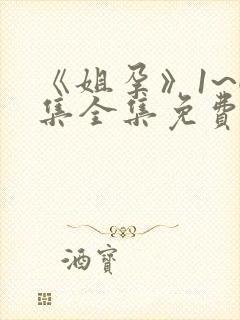 《姐孕》1~
集全集免费
酒宝